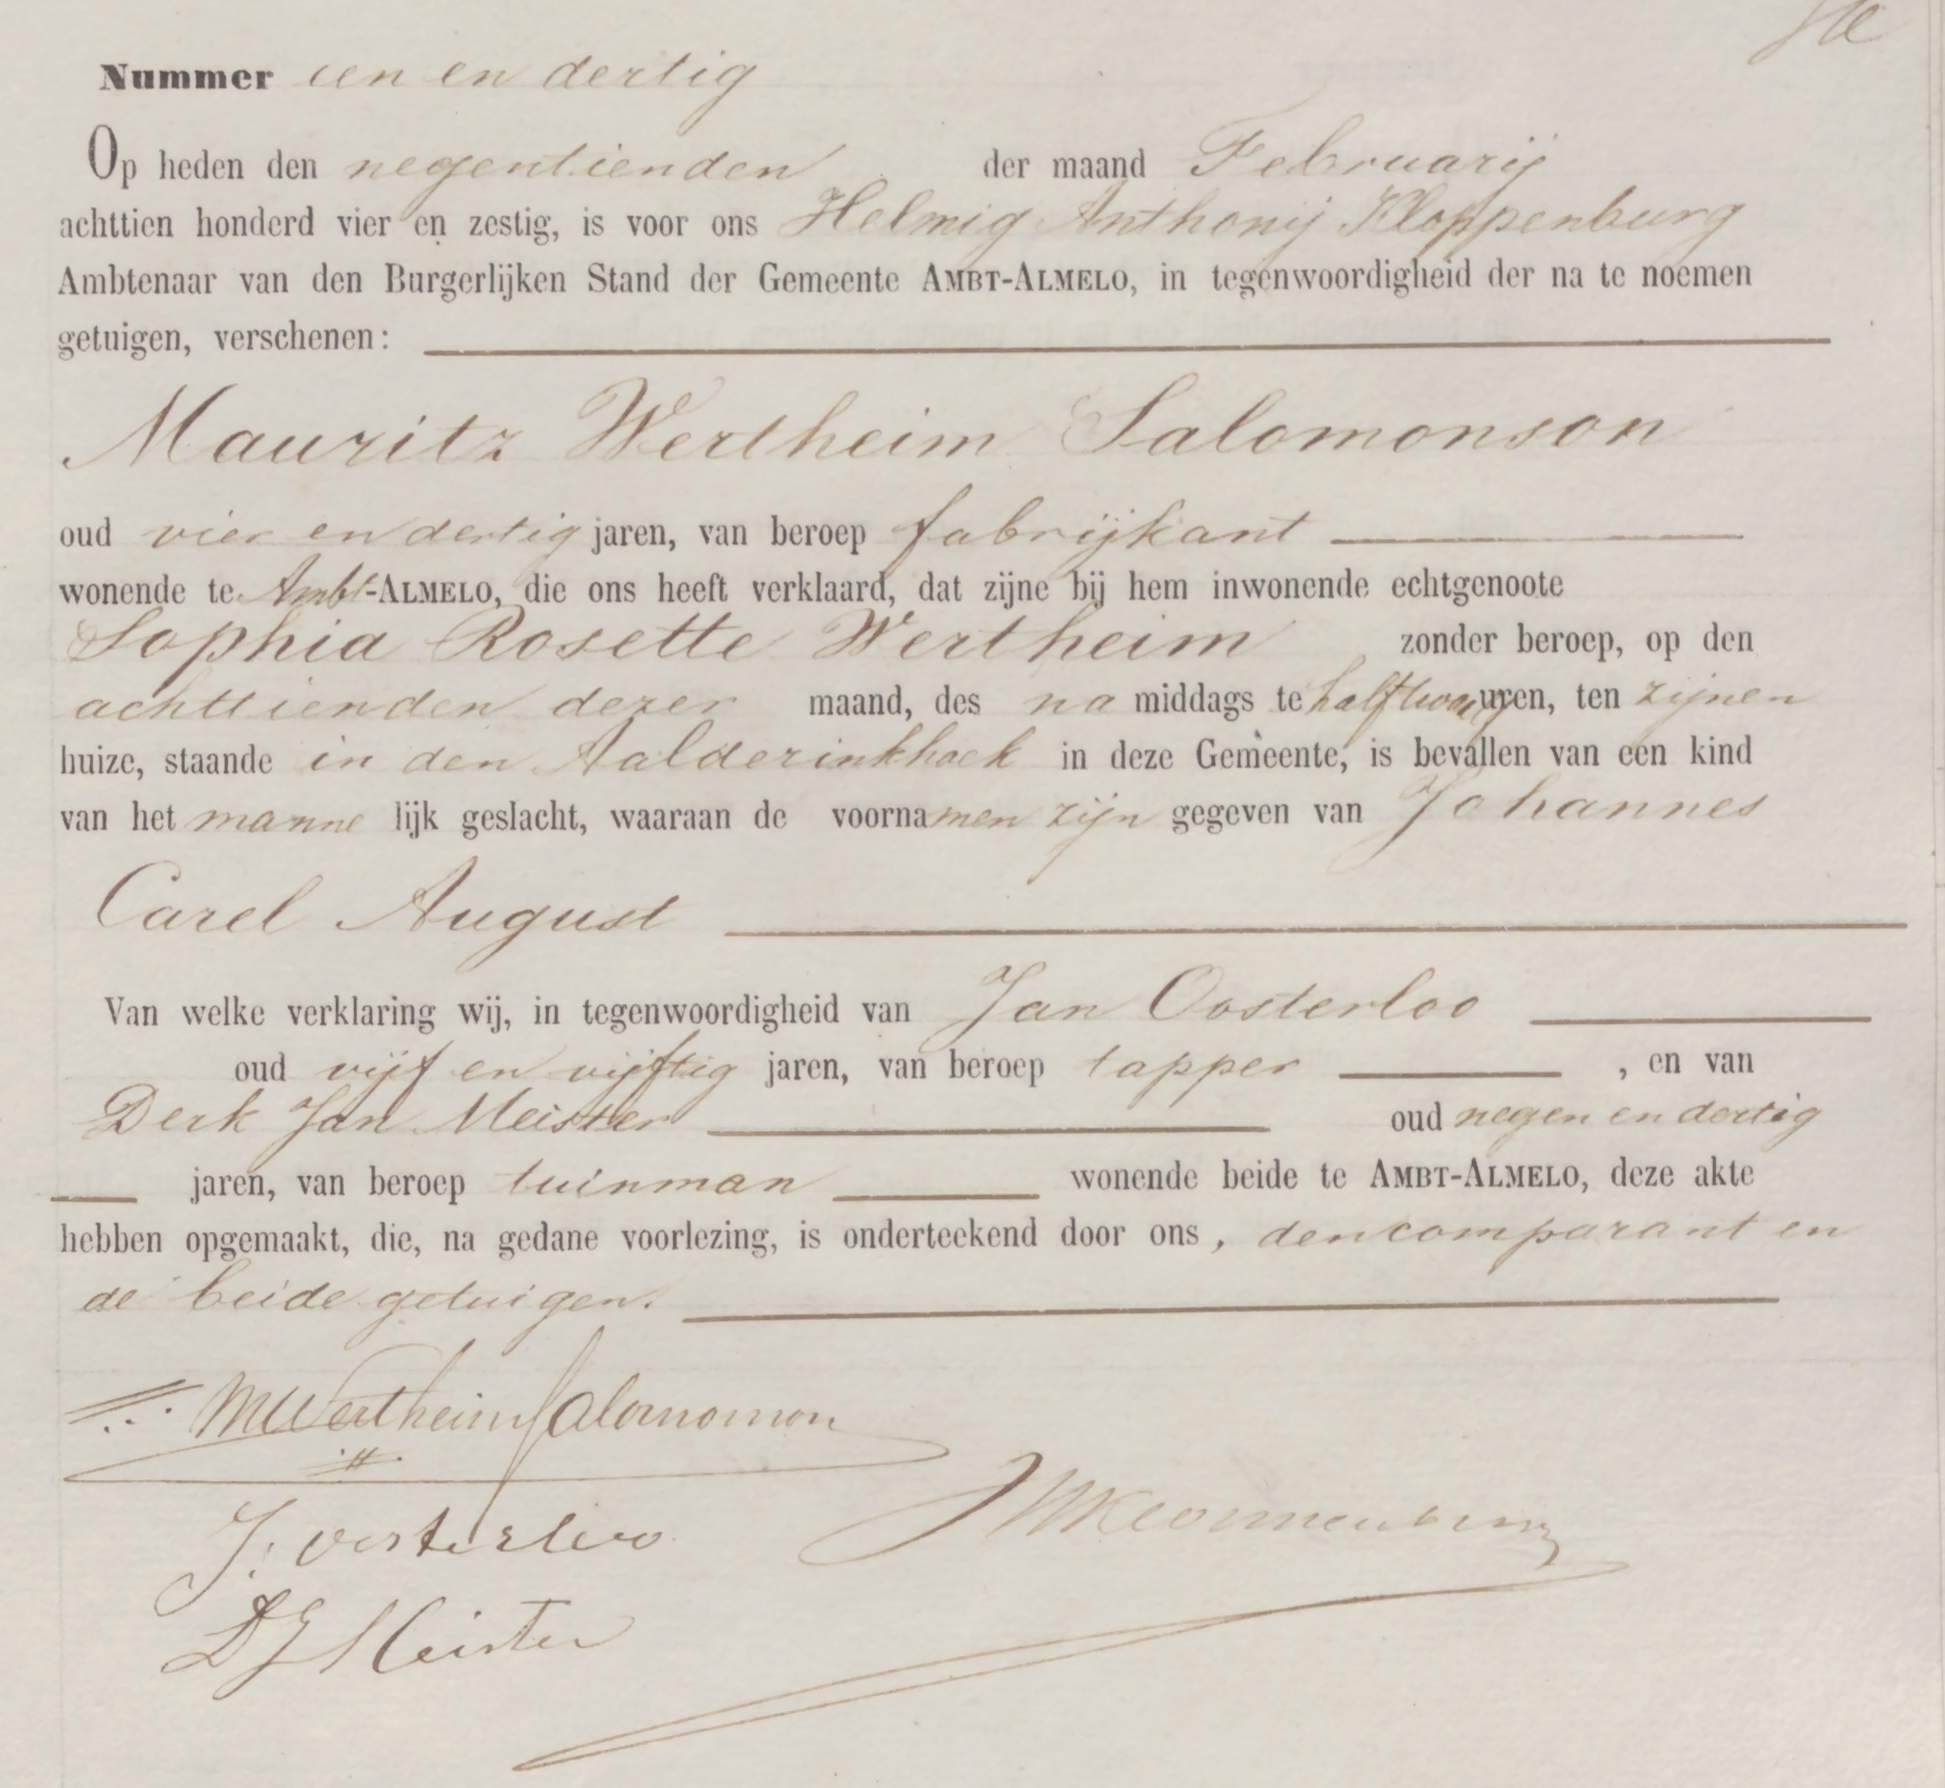 Nummer een en dertig
Op heden den negentienden der maand Februarij
achttien honderd vier en zestig, is voor ons Helmig Anthonij Kloppenburg
Ambtenaar van den Burgerlijken Stand der Gemeente AMBT-ALMELO, in tegenwoordigheid der na te noemen
getuigen, verschenen:
Mauritz Wertheim Salomonson
oud vier en dertig jaren, van beroep fabrijkant
wonende te Ambt-ALMELO, die ons heeft verklaard, dat zijne bij hem inwonende echtgenoote
Sophia Rosette Wertheim zonder beroep, op den
achttienden dezer maand, des na middags te half twaalf uren, ten zijnen
huize, staande in den Aalderinkhoek in deze Gemeente, is bevallen van een kind
van het manne lijk geslacht, waaraan de voornamen zijn gegeven van Johannes
Carel August
Van welke verklaring wij, in tegenwoordigheid van Jan Oosterloo
oud vijf en vijftig jaren, van beroep tapper , en van
Derk Jan Meister oud negen en dertig
jaren, van beroep tuinman wonende beide te AMBT-ALMELO, deze akte
hebben opgemaakt, die, na gedane voorlezing, is onderteekend door ons, den comparant en
de beide getuigen.
MWertheim Salomonson
J. oosterloo
DJ Meister